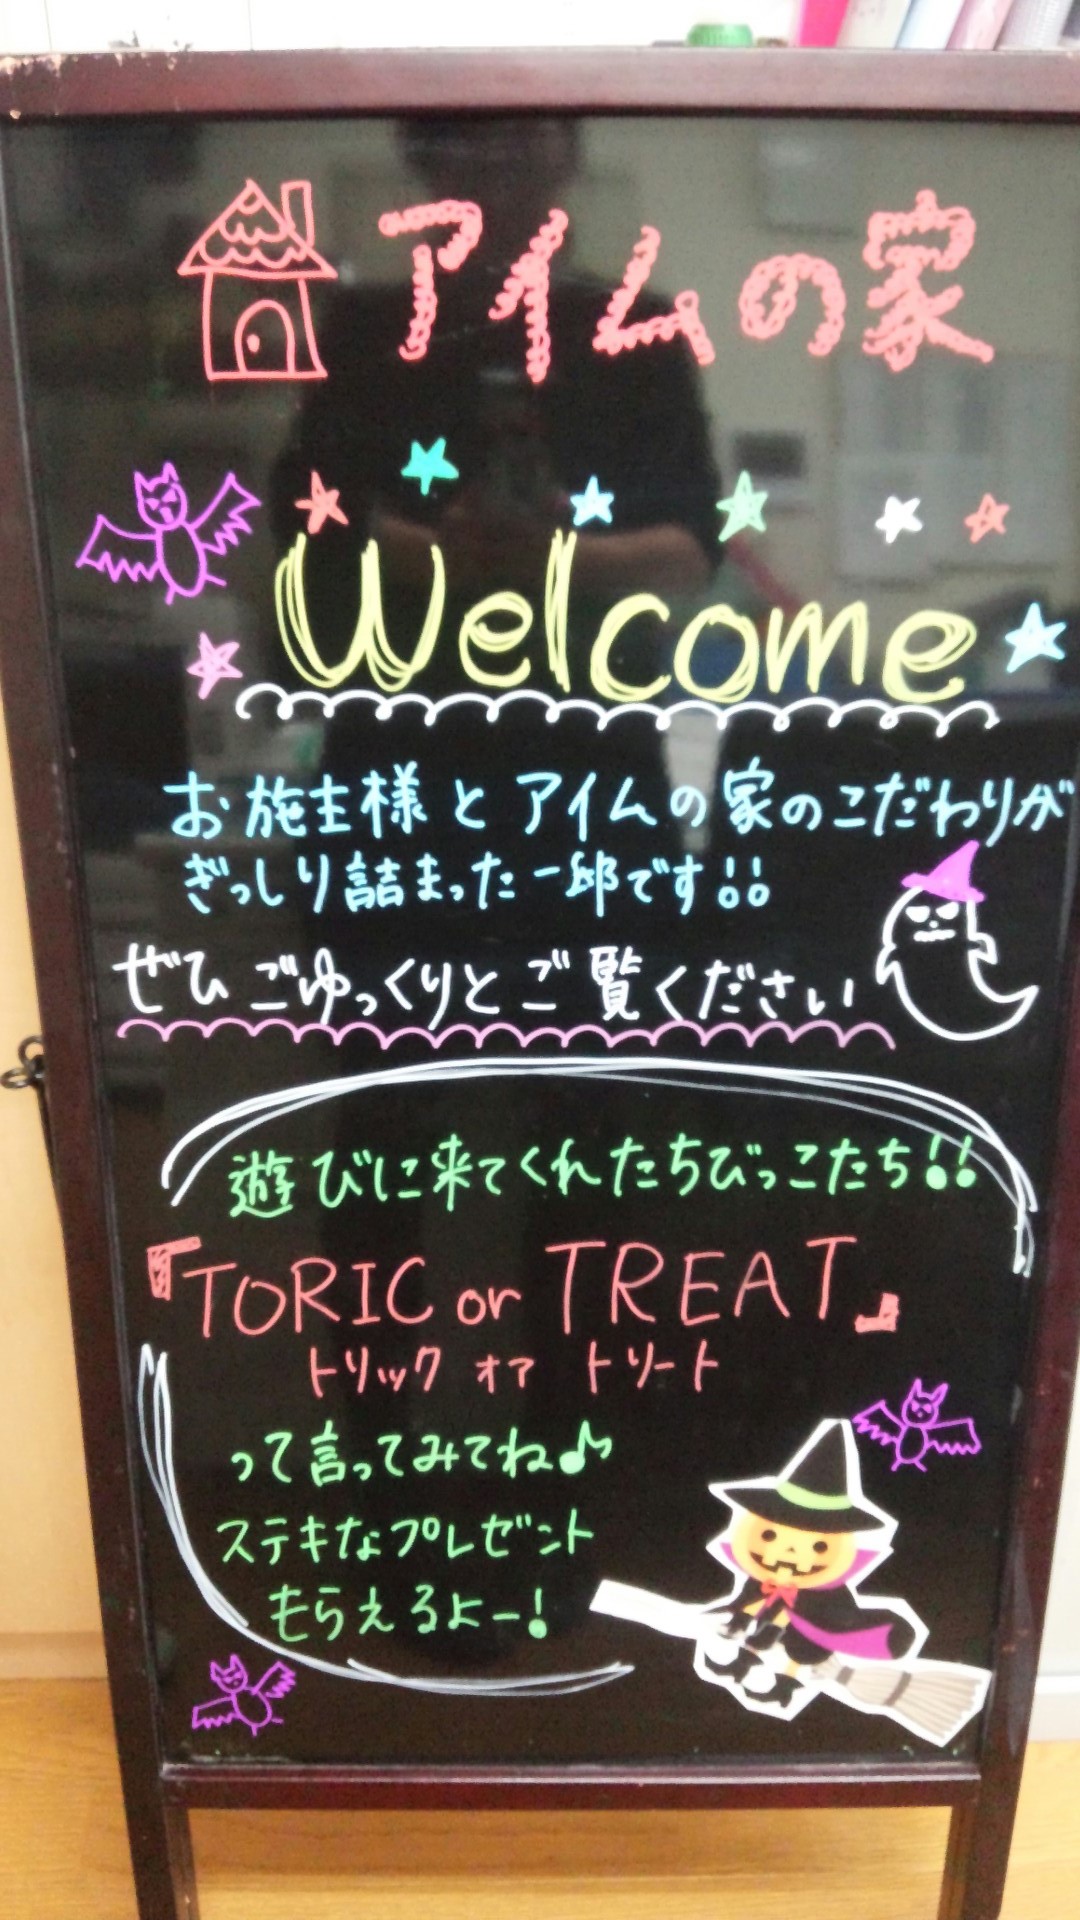 アイムの家
Welcome
お施主様とアイムの家のこだわりが
ぎっしり詰まった一邸です!!
ぜひごゆっくりとご覧ください
遊びに来てくれたちびっこたち!!
『TORIC or TREAT』
トリック オア トリート
って言ってみてね♪
ステキなプレゼント
もらえるよー!